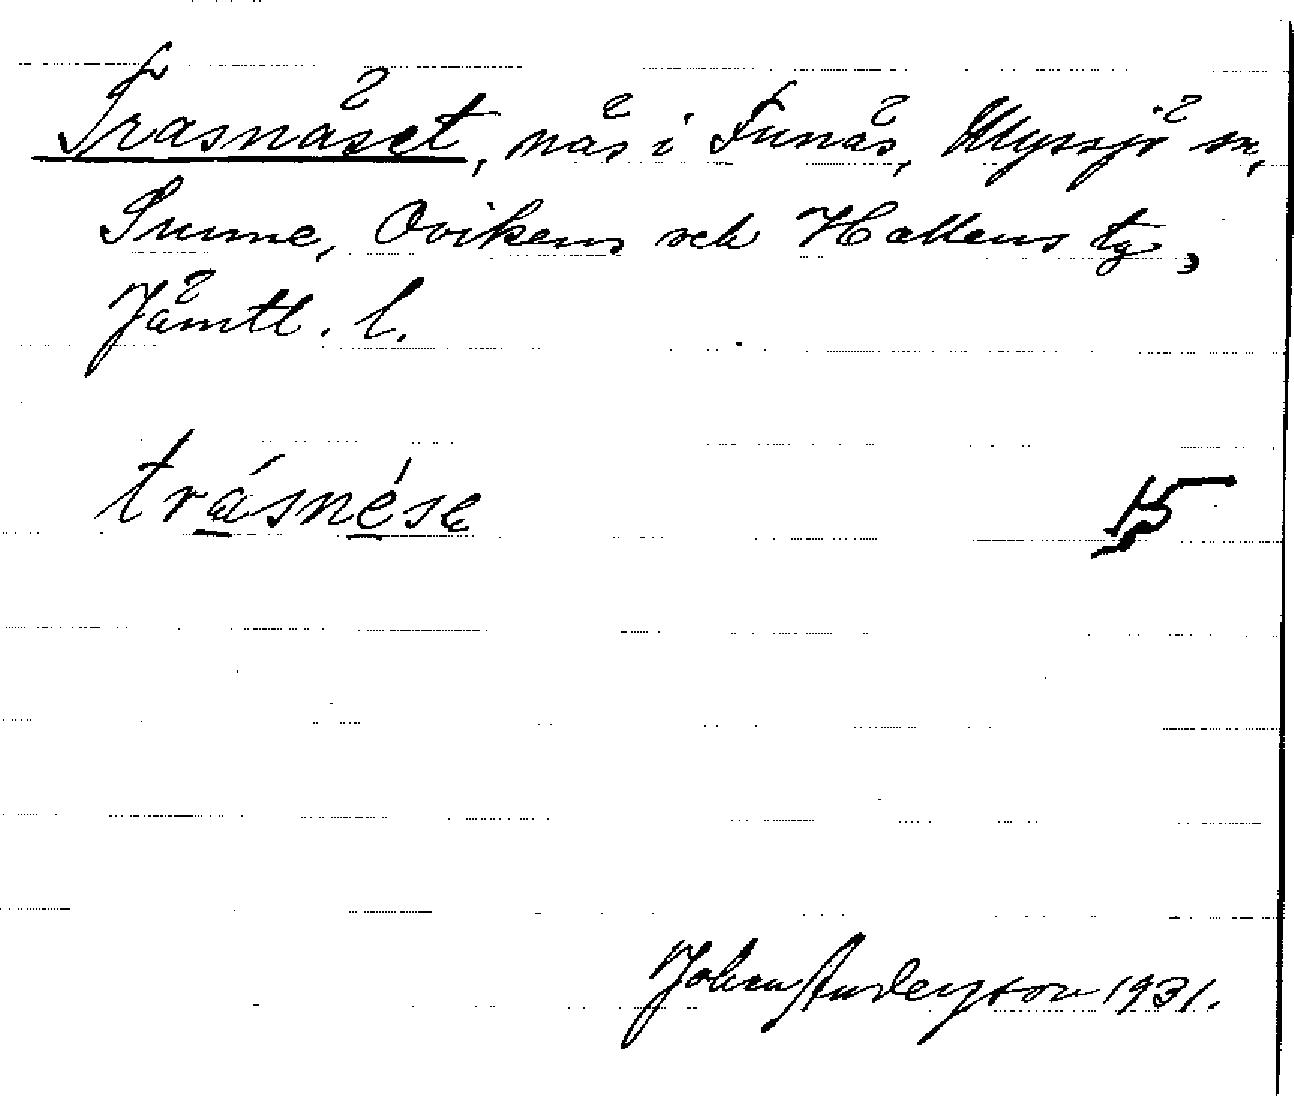 Trasnäset, näs i Funäs, Myssjö sn,
Sunne, Ovikens och Hallens tg,
Jämtl. l.
trásnése
15
Johan Anderson 1931.